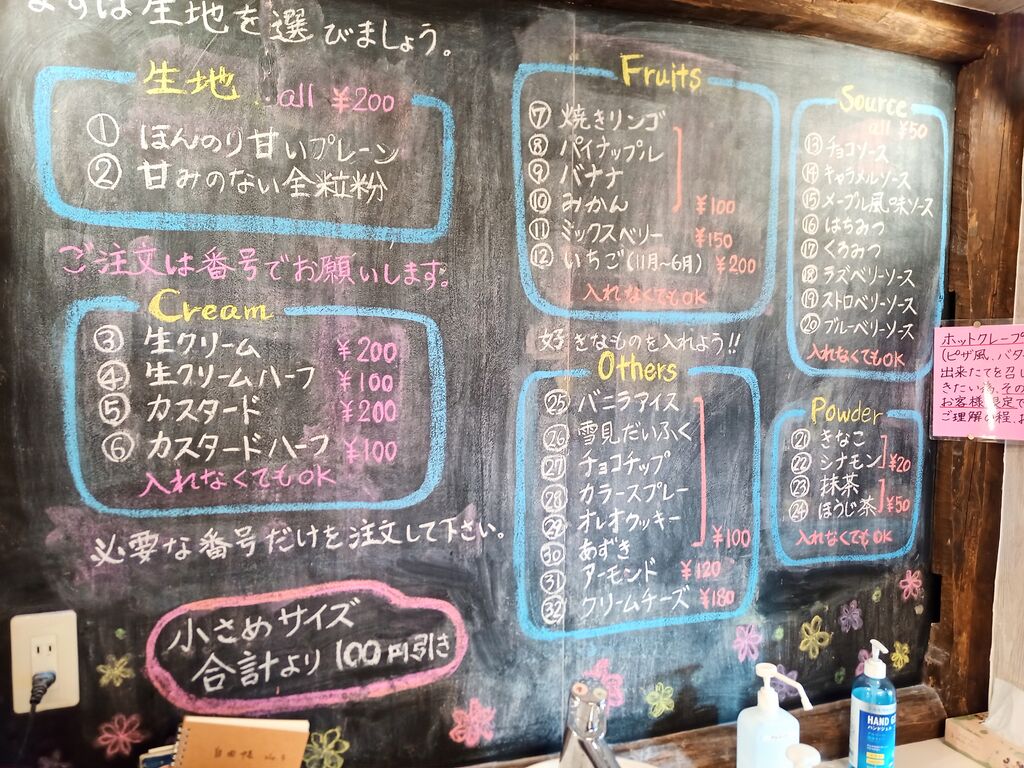 まずは生地を選びましょう。
生地 all ¥200
① ほんのり甘いプレーン
② 甘みのない全粒粉
ご注文は番号でお願いします。
Cream
③ 生クリーム ¥200
④ 生クリームハーフ ¥100
⑤ カスタード ¥200
⑥ カスタードハーフ ¥100
入れなくてもOK
必要な番号だけを注文して下さい。
小さめサイズ
合計より 100円引き
Fruits
⑦ 焼きリンゴ
⑧ パイナップル
⑨ バナナ
⑩ みかん ¥100
⑪ ミックスベリー ¥150
⑫ いちご(11月~6月) ¥200
入れなくてもOK
好きなものを入れよう!!
Others
㉕ バニラアイス
㉖ 雪見だいふく
㉗ チョコチップ
㉘ カラースプレー
㉙ オレオクッキー
㉚ あずき ¥100
㉛ アーモンド ¥120
㉜ クリームチーズ ¥180
Source
all ¥50
⑬ チョコソース
⑭ キャラメルソース
⑮ メープル風味ソース
⑯ はちみつ
⑰ くろみつ
⑱ ラズベリーソース
⑲ ストロベリーソース
⑳ ブルーベリーソース
入れなくてもOK
Powder
㉑ きなこ
㉒ シナモン ¥20
㉓ 抹茶
㉔ ほうじ茶 ¥50
入れなくてもOK
ホットクレープ
(ピザ風、バタ
出来たてを召し
きたい為、その
お客様限定で
ご理解の程、お
自由帳 No.3
HAND GE
ハンドジェル